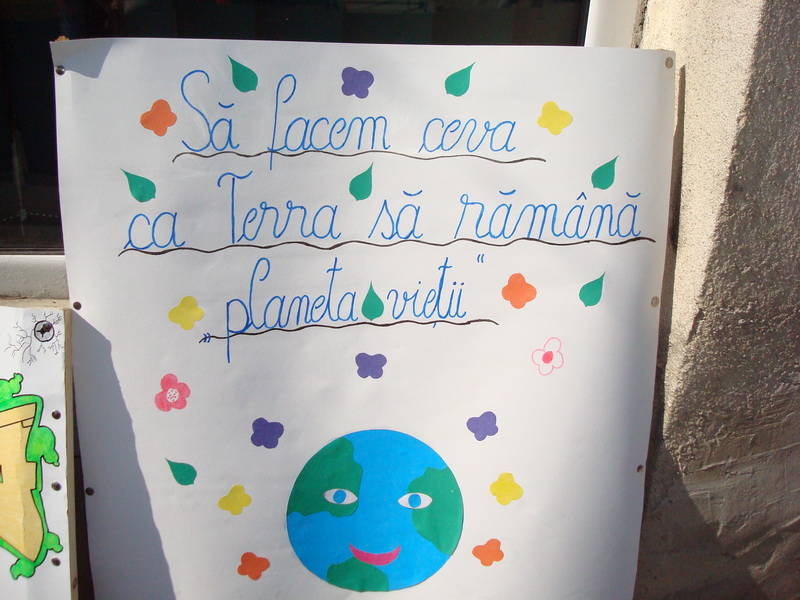 Să facem ceva
ca Terra să rămână
„planeta vieții“